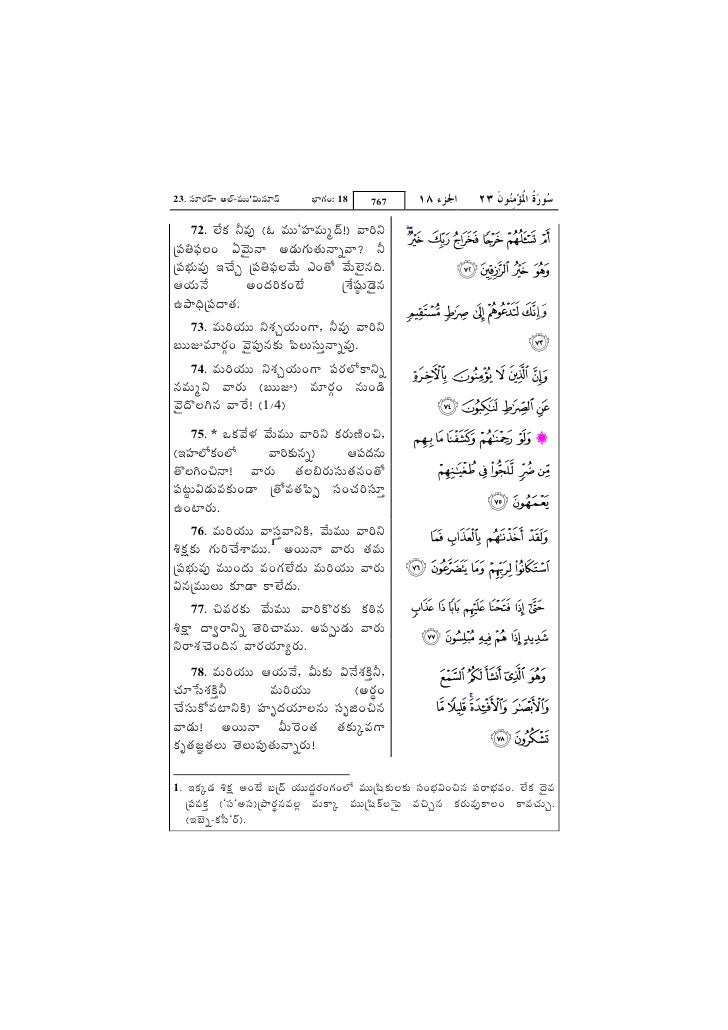 23. సూరహ్ అల్-ము'మినూన్ భాగం: 18 767 الجزء ١٨ سُورَةُ الْمُؤْمِنُونَ ٢٣
72. లేక నీవు (ఓ ము'హమ్మద్!) వారిని
ప్రతిఫలం ఏమైనా అడుగుతున్నావా? నీ
ప్రభువు ఇచ్చే ప్రతిఫలమే ఎంతో మేలైనది.
ఆయనే అందరికంటే శ్రేష్ఠుడైన
ఉపాధిప్రదాత.
73. మరియు నిశ్చయంగా, నీవు వారిని
ఋజుమార్గం వైపునకు పిలుస్తున్నావు.
74. మరియు నిశ్చయంగా పరలోకాన్ని
నమ్మని వారు (ఋజు) మార్గం నుండి
వైదొలగిన వారే! (1/4)
75. * ఒకవేళ మేము వారిని కరుణించి,
(ఇహలోకంలో వారికున్న) ఆపదను
తొలగించినా! వారు తలబిరుసుతనంతో
పట్టువిడువకుండా త్రోవతప్పి సంచరిస్తూ
ఉంటారు.
76. మరియు వాస్తవానికి, మేము వారిని
శిక్షకు గురిచేశాము.1 అయినా వారు తమ
ప్రభువు ముందు వంగలేదు మరియు వారు
వినమ్రులు కూడా కాలేదు.
77. చివరకు మేము వారికొరకు కఠిన
శిక్షా ద్వారాన్ని తెరిచాము. అప్పుడు వారు
నిరాశచెందిన వారయ్యారు.
78. మరియు ఆయనే, మీకు వినేశక్తినీ,
చూసేశక్తినీ మరియు (అర్థం
చేసుకోవటానికి) హృదయాలను సృజించిన
వాడు! అయినా మీరెంత తక్కువగా
కృతజ్ఞతలు తెలుపుతున్నారు!
أَمْ تَسْـَٔلُهُمْ خَرْجًا فَخَرَاجُ رَبِّكَ خَيْرٌ ۖ
وَهُوَ خَيْرُ ٱلرَّٰزِقِينَ ٧٢
وَإِنَّكَ لَتَدْعُوهُمْ إِلَىٰ صِرَٰطٍ مُّسْتَقِيمٍ
٧٣
وَإِنَّ ٱلَّذِينَ لَا يُؤْمِنُونَ بِٱلْـَٔاخِرَةِ
عَنِ ٱلصِّرَٰطِ لَنَٰكِبُونَ ٧٤
۞ وَلَوْ رَحِمْنَٰهُمْ وَكَشَفْنَا مَا بِهِم
مِّن ضُرٍّ لَّلَجُّوا۟ فِى طُغْيَٰنِهِمْ
يَعْمَهُونَ ٧٥
وَلَقَدْ أَخَذْنَٰهُم بِٱلْعَذَابِ فَمَا
ٱسْتَكَانُوا۟ لِرَبِّهِمْ وَمَا يَتَضَرَّعُونَ ٧٦
حَتَّىٰٓ إِذَا فَتَحْنَا عَلَيْهِم بَابًا ذَا عَذَابٍ
شَدِيدٍ إِذَا هُمْ فِيهِ مُبْلِسُونَ ٧٧
وَهُوَ ٱلَّذِىٓ أَنشَأَ لَكُمُ ٱلسَّمْعَ
وَٱلْأَبْصَٰرَ وَٱلْأَفْـِٔدَةَ ۚ قَلِيلًا مَّا
تَشْكُرُونَ ٧٨
1. ఇక్కడ శిక్ష అంటే బద్ర్ యుద్ధరంగంలో ముష్రికులకు సంభవించిన పరాభవం. లేక దైవ
ప్రవక్త ('స'అస) ప్రార్థనవల్ల మక్కా ముష్రిక్‌లపై వచ్చిన కరువుకాలం కావచ్చు.
(ఇబ్నె-కసీ'ర్).